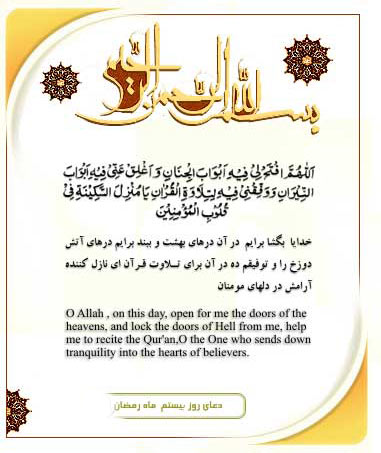 بسم الله الرحمن الرحیم
اَللّهُمَّ افْتَحْ لی فیهِ اَبْوابَ الْجِنانِ وَ اَغْلِقْ عَنّی فیهِ اَبْوابَ
النّیرانِ وَ وَفِّقْنی فیهِ لِتِلاوَةِ الْقُرْآنِ یا مُنْزِلَ السَّکینَةِ فی
قُلُوبِ الْمُؤْمِنینَ
خدایا بگشا برایم در آن درهای بهشت و ببند برایم درهای آتش
دوزخ را و توفیقم ده در آن برای تـلاوت قـرآن ای نازل کننده
آرامش در دلهای مومنان
O Allah , on this day, open for me the doors of the
heavens, and lock the doors of Hell from me, help
me to recite the Qur'an,O the One who sends down
tranquility into the hearts of believers.
دعای روز بیستم ماه رمضان